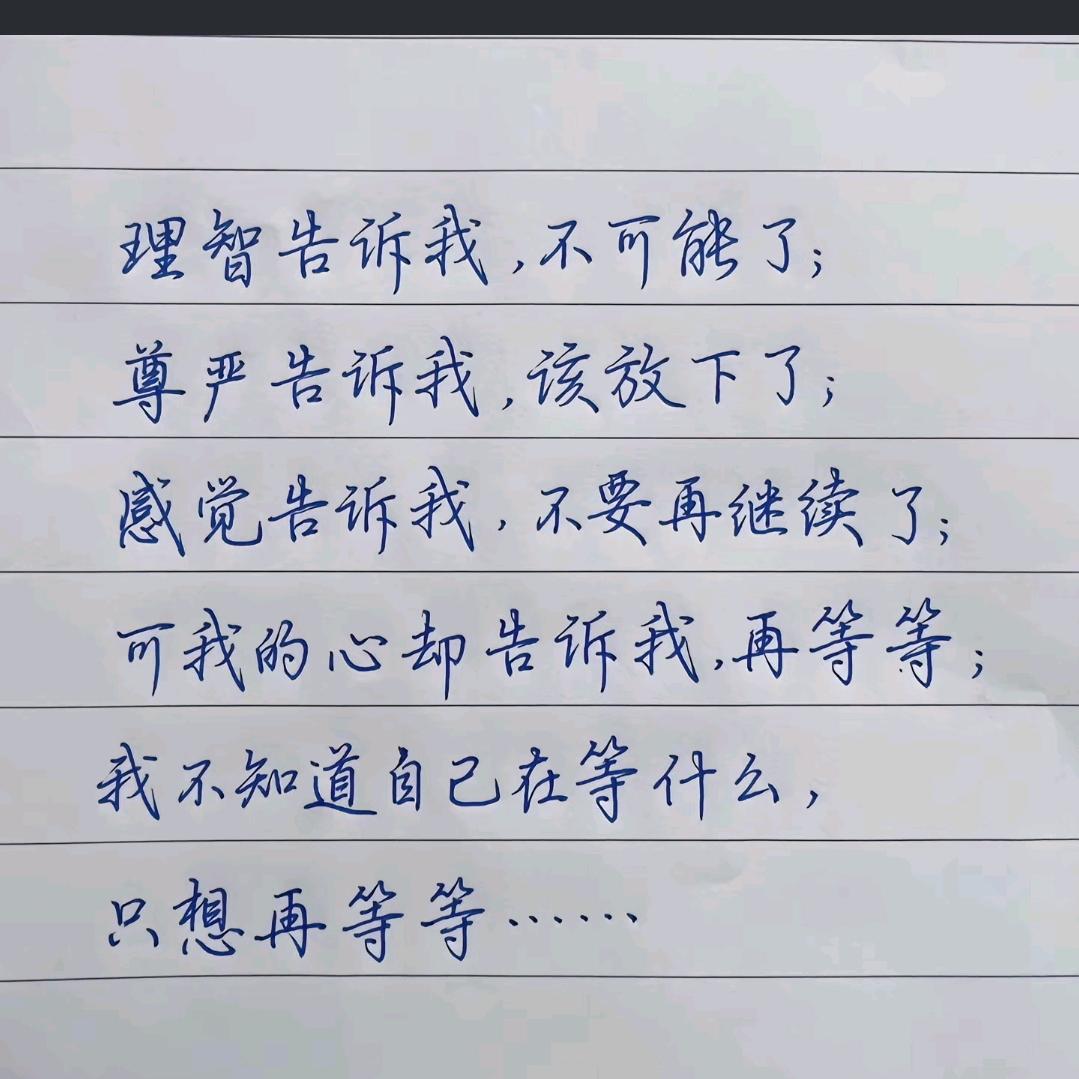 理智告诉我,不可能了;
尊严告诉我,该放下了;
感觉告诉我,不要再继续了;
可我的心却告诉我,再等等;
我不知道自己在等什么,
只想再等等……